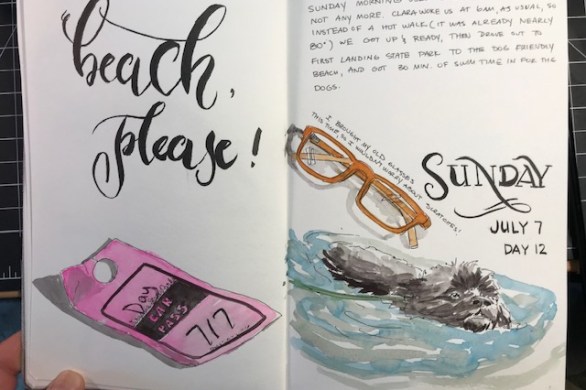 beach,
please!
Day
CAR
PASS
7/7
SUNDAY MORNING
NOT ANY MORE. CLARA WOKE US AT 6AM, AS USUAL, SO
INSTEAD OF A HOT WALK (IT WAS ALREADY NEARLY
80°) WE GOT UP & READY, THEN DROVE OUT TO
FIRST LANDING STATE PARK TO THE DOG FRIENDLY
BEACH, AND GOT 30 MIN. OF SWIM TIME IN FOR THE
DOGS.
I BROUGHT MY OLD GLASSES
THIS TIME, SO I WOULDN'T WORRY ABOUT SCRATCHES!
SUNDAY
JULY 7
DAY 12